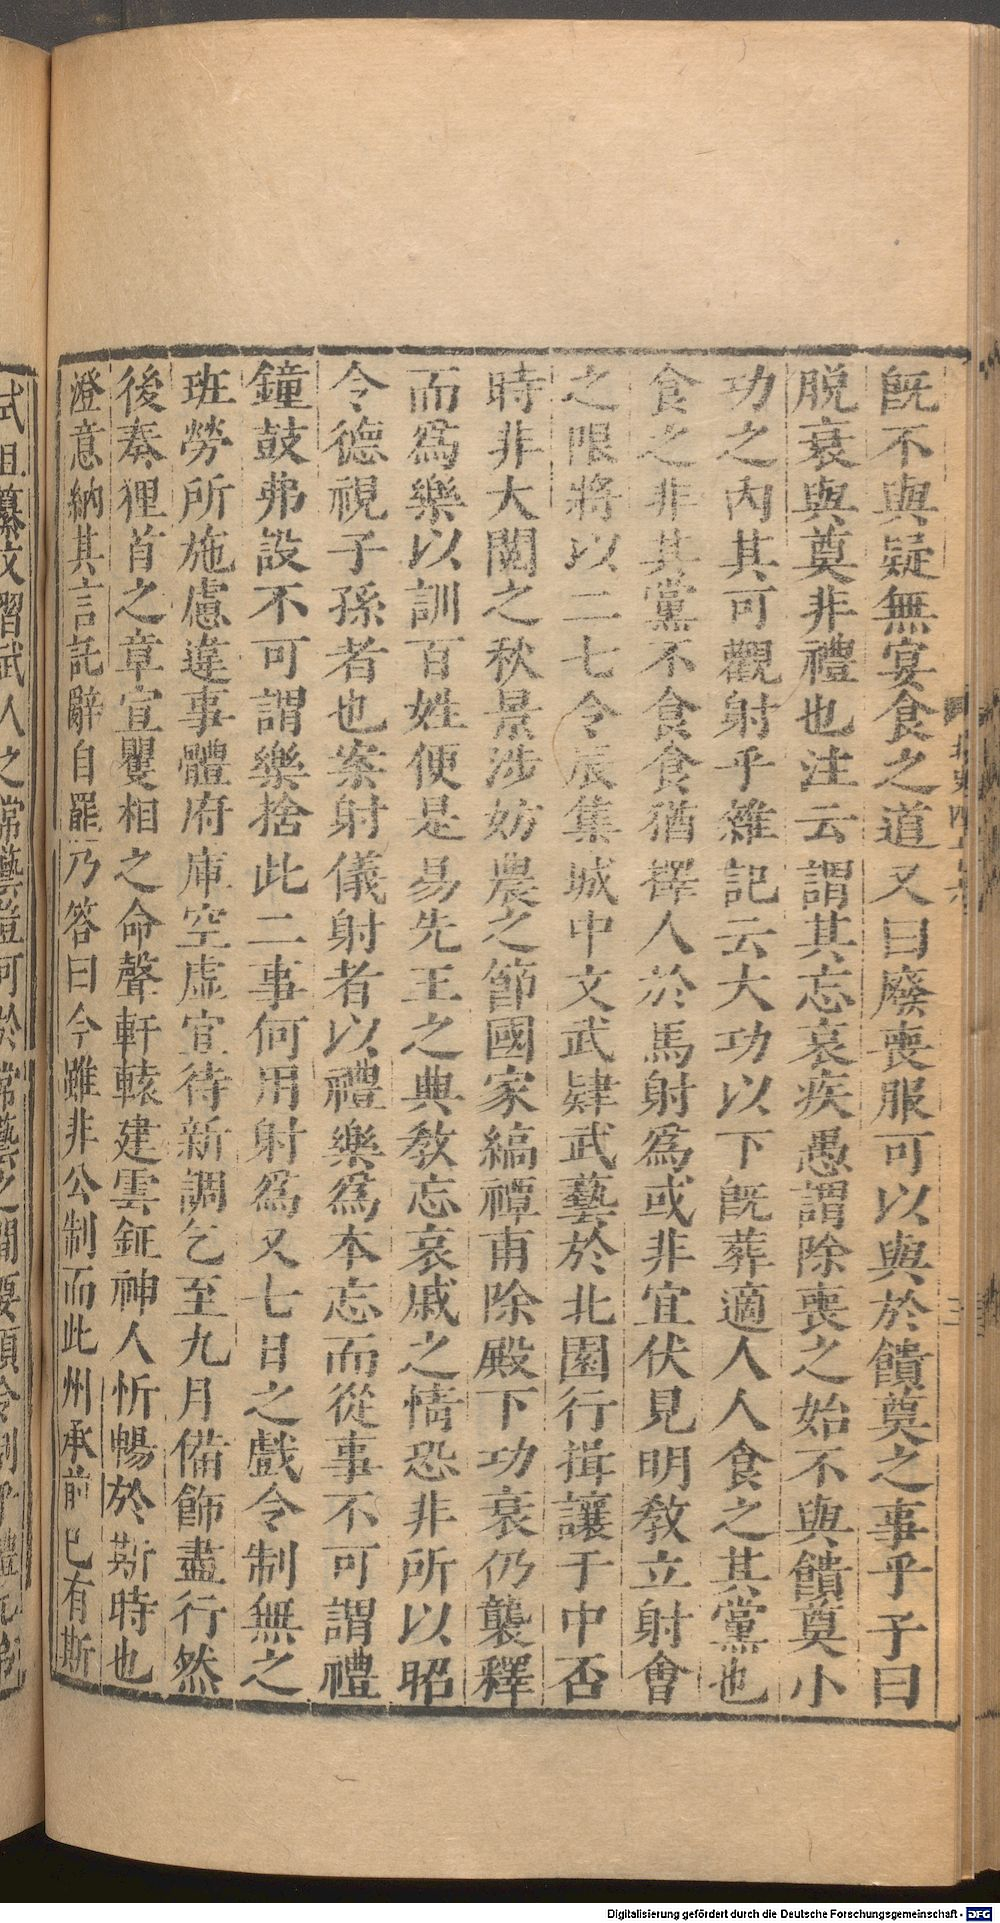 既不與疑無宴食之道又曰廢喪服可以與於饋奠之事乎子曰
脫衰與奠非禮也注云謂其忘哀疾愚謂除喪之始不與饋奠小
功之內其可觀射乎雜記云大功以下既葬適人人食之其黨也
食之非其黨不食食猶擇人於馬射爲或非宜伏見明教立射會
之限將以二七令辰集城中文武肄武藝於北園行揖讓于中否
時非大閱之秋景涉妨農之節國家縞禫甫除殿下功衰仍襲釋
而爲樂以訓百姓便是易先王之典教忘哀戚之情恐非所以昭
令德視子孫者也案射儀射者以禮樂爲本忘而從事不可謂禮
鐘鼓弗設不可謂樂捨此二事何用射爲又七日之戲令制無之
班勞所施慮違事體府庫空虛宜待新調乞至九月備飾盡行然
後奏狸首之章宣矍相之命聲軒轅建雲鉦神人忻暢於斯時也
澄意納其言託辭自罷乃答曰今雖非公制而此州承前已有斯
式且纂文習武人之常藝豈可於常藝之間要須令制乎禮
Digitalisierung gefördert durch die Deutsche Forschungsgemeinschaft - DFG